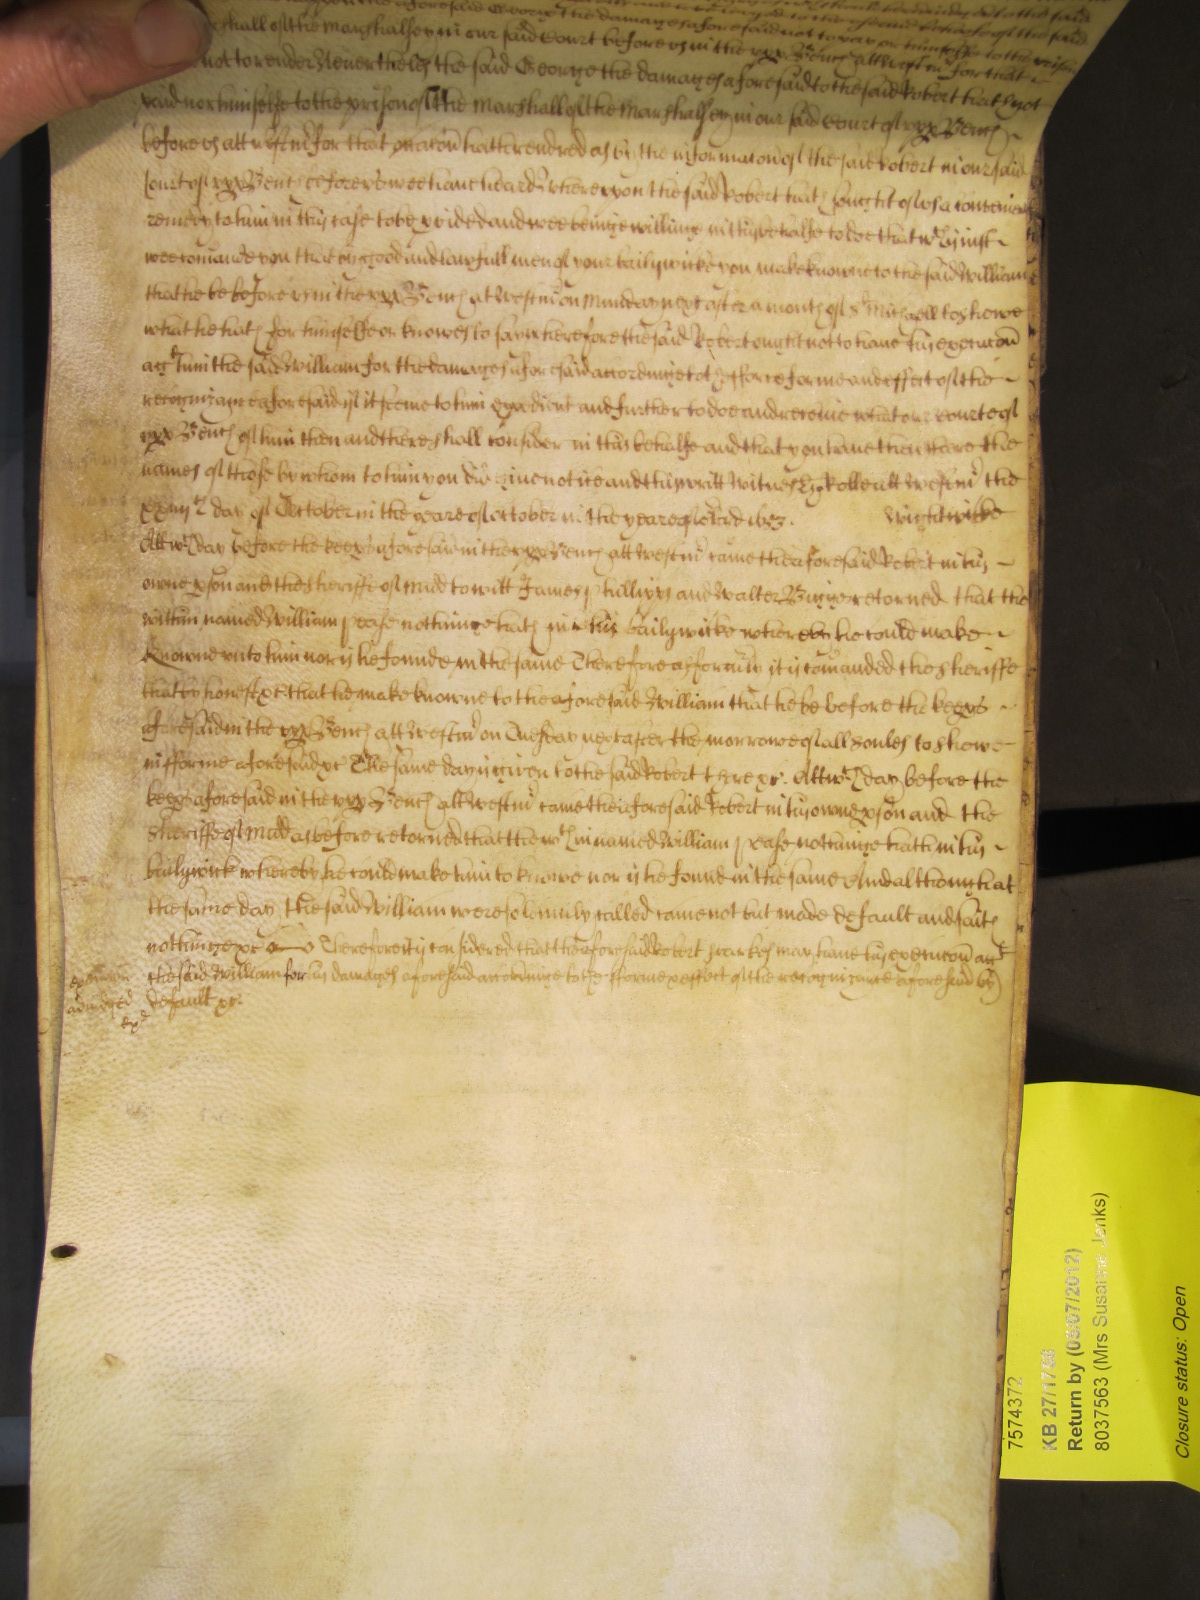 the damages aforesaid not to
shall of the Marshalsey in our said Court before us in the upp Bench att Westm for that
not to render Neverthelesse the said George the damages aforesaid to the said Robert hath not
paid nor himselfe to the prison of the Marshall of the Marshalsey in our said Court of upp Bench
before us att Westm for that occacon hath rendred as by the informacon of the said Robert in our said
Court of upp Bench before us wee have heard Whereupon the said Robert hath sought of us a convenient
remedy to him in this case to be pvided and wee beinge willinge in this behalfe to doe that wch is just
wee comande you that by good and lawfull men of your bailywicke you make knowne to the said William
that he be before us in the upp Bench at Westm on Munday next after a month of St Michaell to showe
what he hath for himselfe or knowes to say wherefore the said Robert ought not to have his execucon
agt him the said William for the damages aforesaid accordinge to the force forme and effect of the
recognizance aforesaid if it seeme to him expedient and further to doe and receive what our Court of
upp Bench of him then and there shall consider in this behalfe and that you have then there the
names of those by whom to him you shall give notice and this writt Witnes H Rolle att Westm the
day of October in the yeare of October in the yeare of lord 1653. Wightwicke
Att wch day before the keeps aforesaid in the upp Bench att Westm came the aforesaid Robert in his
owne pson and the Sheriffe of Midd to witt James Phillipps and Walter Bigge retorned that the
within named William Pease nothinge hath in his bailywicke whereby he could make
knowne unto him nor is he founde in the same Therefore as formly it is comanded the Sheriffe
that by honest &c that he make knowne to the aforesaid William that he be before the keeps
aforesaid in the upp Bench att Westm on Tuesday next after the morrowe of all Soules to showe
in fforme aforesaid &c The same day is given to the said Robert there &c. Att wch day before the
keeps aforesaid in the upp Bench att Westm came the aforesaid Robert in his owne pson and the
Sheriffe of Midd as before retorned that the wthin named William Pease nothinge hath in his
bailywick whereby he could make him to knowe nor is he found in the same And although att
the same day the said William were solemnly called came not but made default and saith
nothinge &c Therefore it is considered that the aforesaid Robert may have his execucon agt
the said William for his damages aforesaid accordinge to the fforme & effect of the recognizance aforesaid by
default &c.
execucon
adjudged
7574372
KB 27/1756
Return by (05/07/2012)
8037563 (Mrs Susanne Jenks)
Closure status: Open